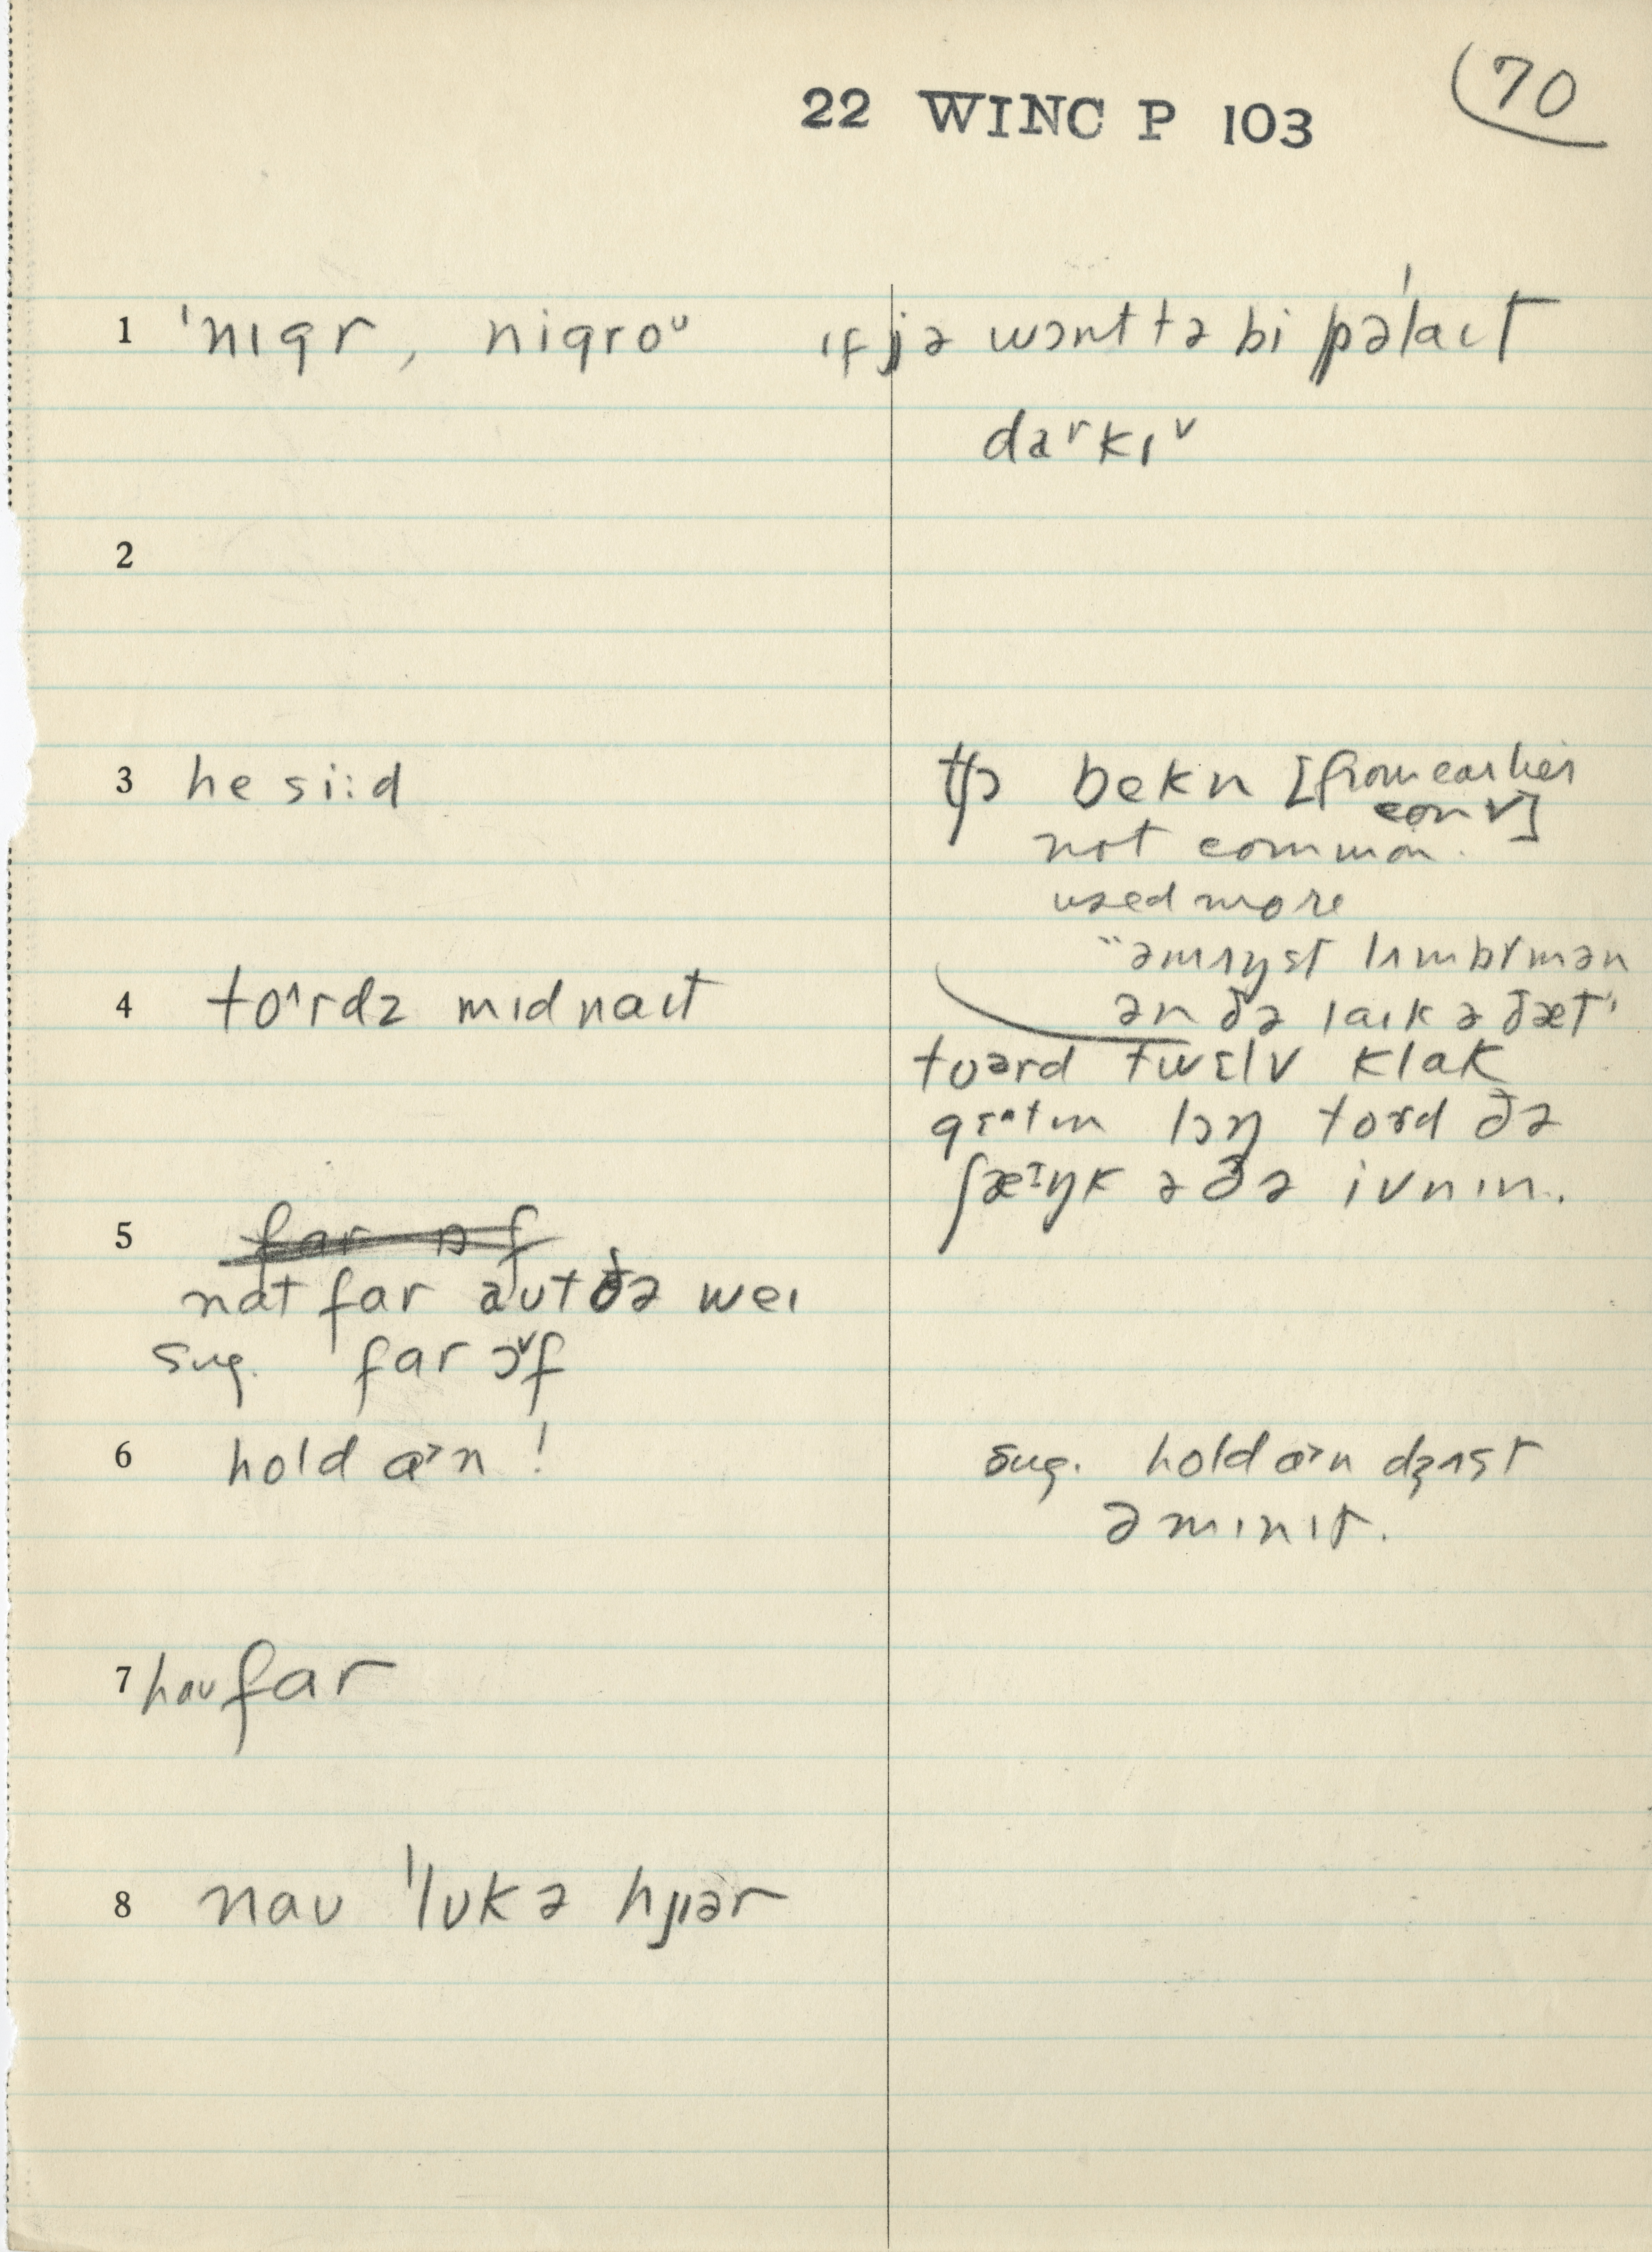 22 WINC P 103
70
1 ˈnɪgr, nigroᵘ ɪf jə wɔnt tə bi pəˈlaɪt
darkɪ˅
2
3 he si:d
bekn [from earlier
conv]
not common.
used more
"əmʌŋst lʌmbrmən
ən ðə laɪk ə ðæt"
4 to^rdz mɪdnaɪt
toərd twɛlv klak
lɔŋ tord ðə
ʃæɪŋk ə ðə ivnɪn.
5 far ɔf
nat far aut ðə weɪ
sug. far ɔ˅f
6 hold ɑ>n!
sug. hold ɑ>n dʒʌst
ə mɪnɪt.
7 hau far
8 nau ˈlʊk ə hjɪər